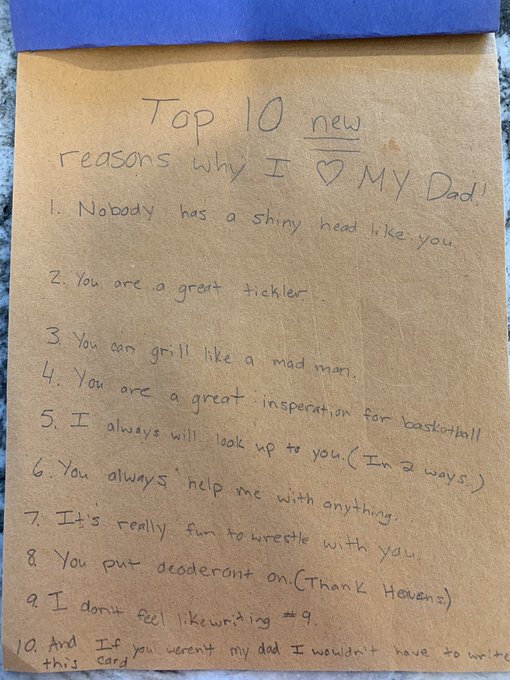 Top 10 new
reasons why I ♡ MY Dad!
1. Nobody has a shiny head like you.
2. You are a great tickler
3. You can grill like a mad man.
4. You are a great insperation for basketball
5. I always will look up to you. (In 2 ways.)
6. You always help me with anything.
7. It's really fun to wrestle with you.
8. You put deoderant on. (Thank Heavens.)
9. I don't feel like writing #9.
10. And If you weren't my dad I wouldn't have to write
this card